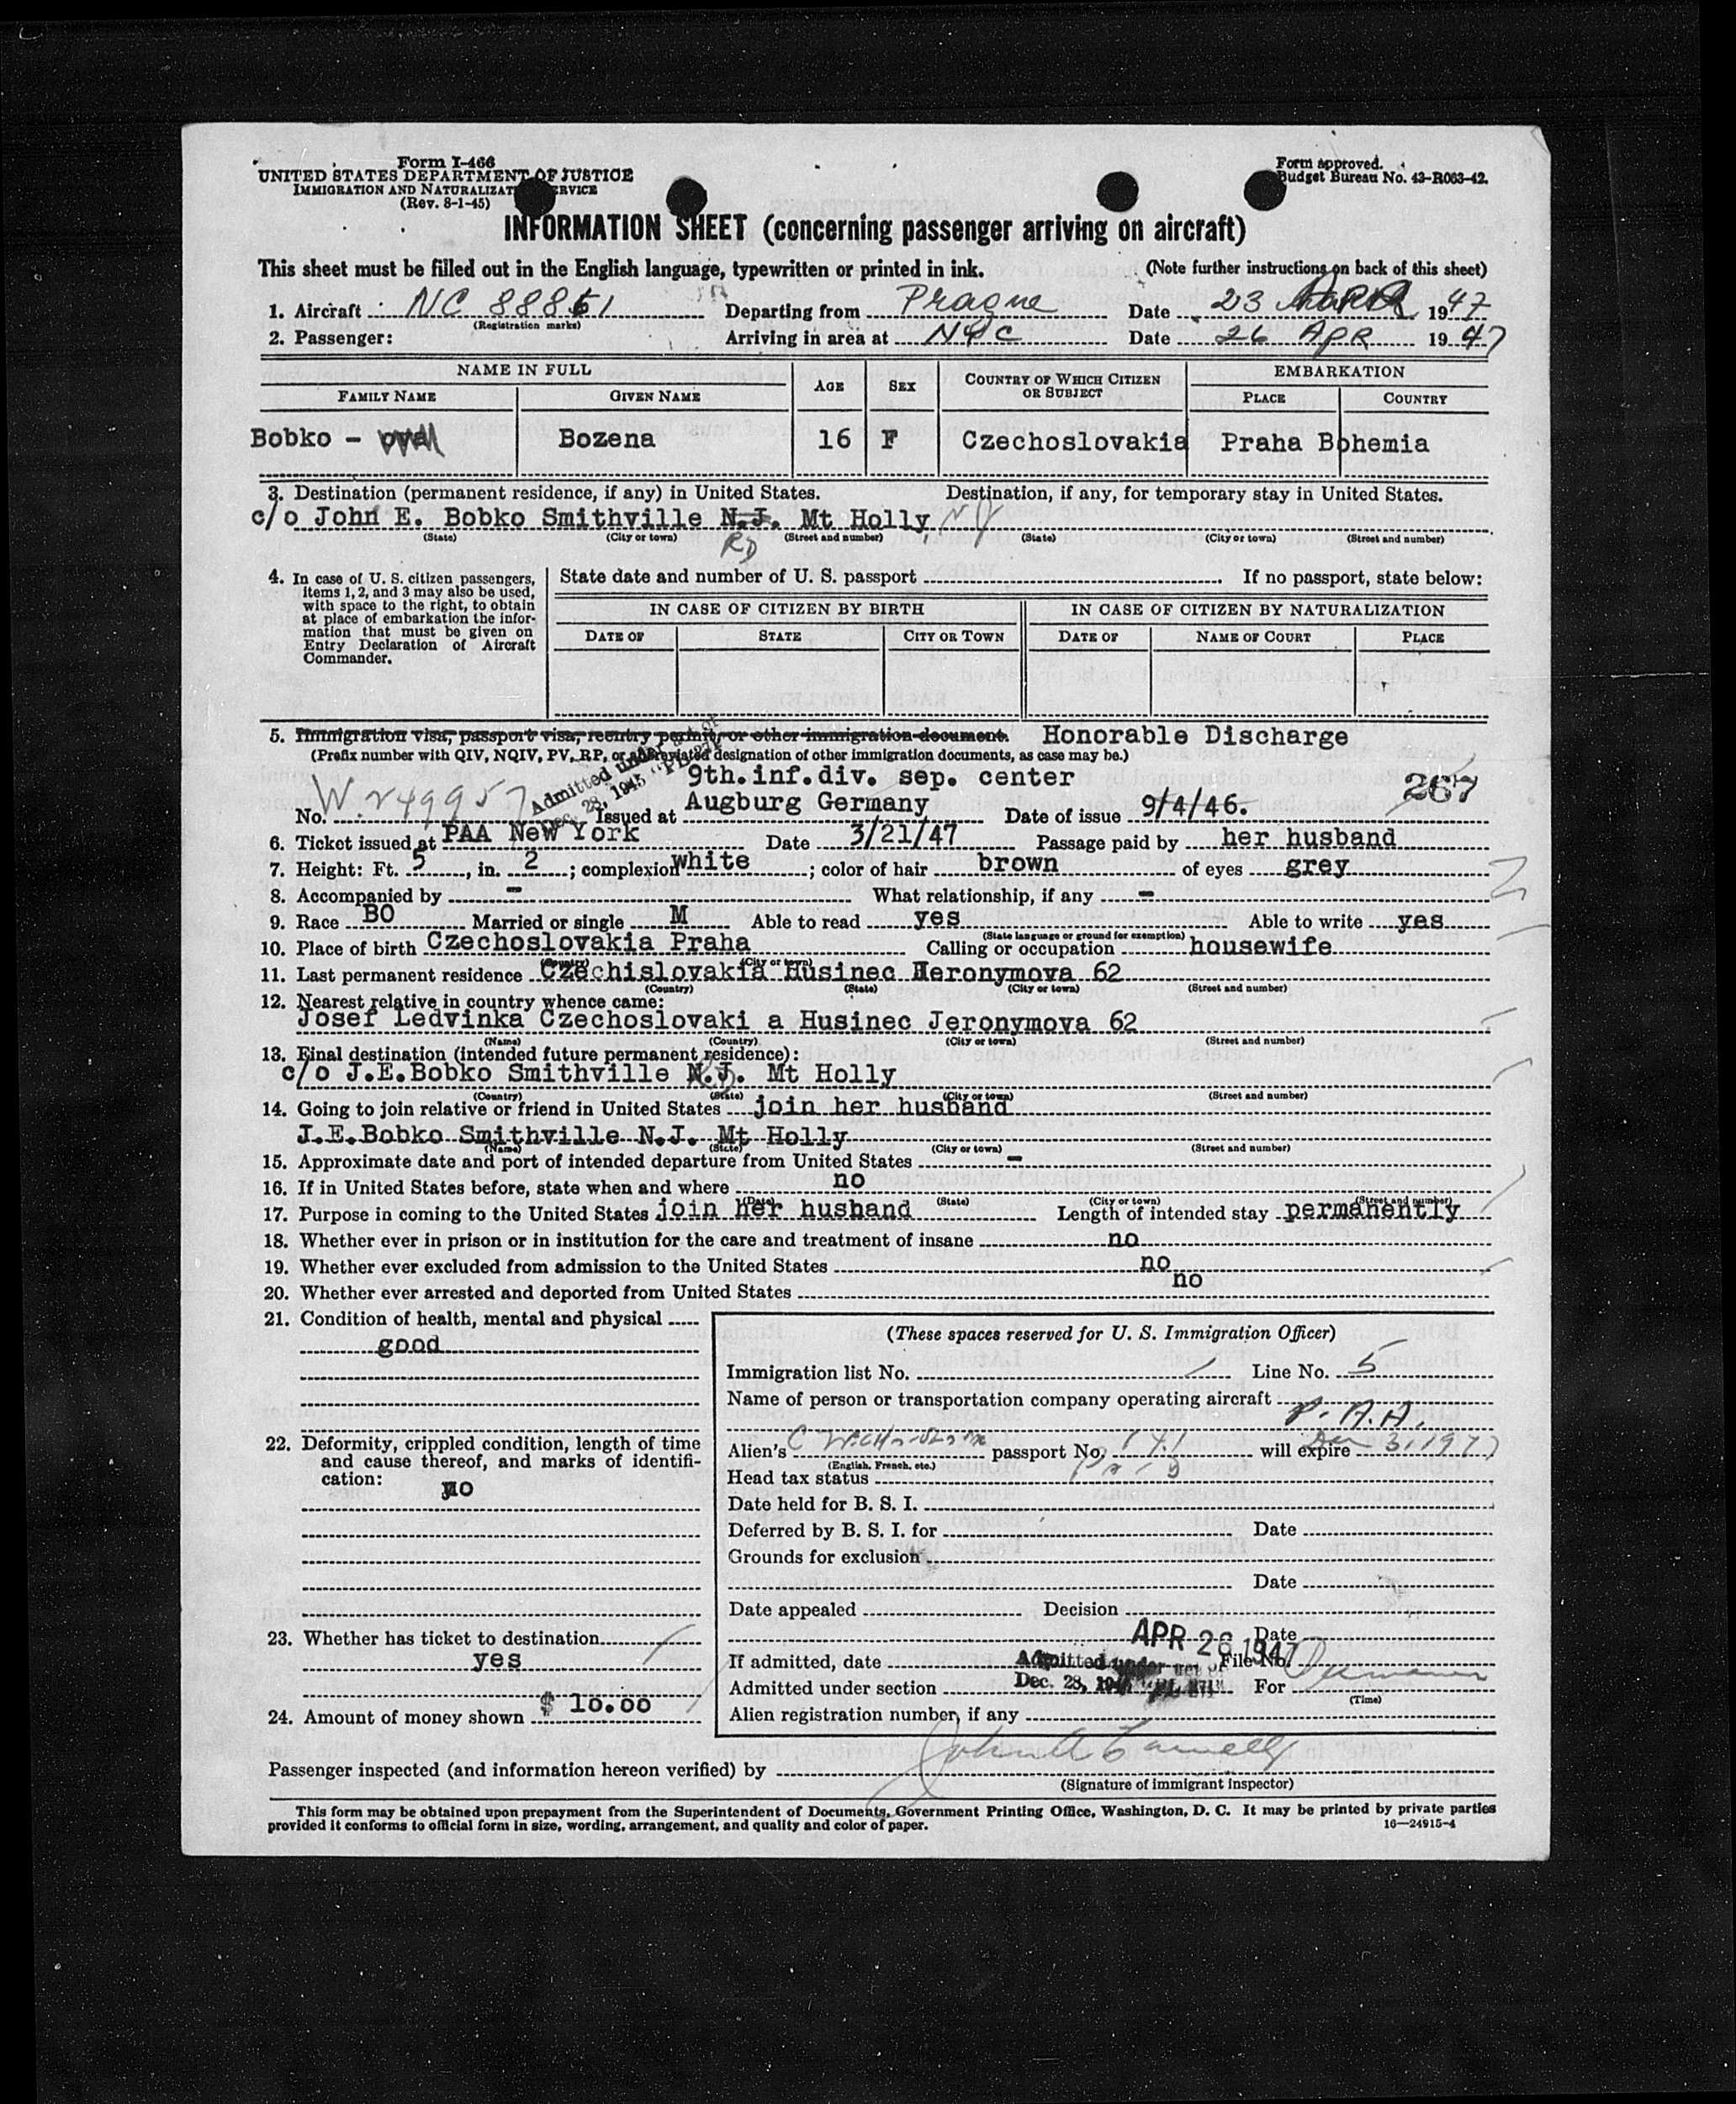 Form I-466
UNITED STATES DEPARTMENT OF JUSTICE
IMMIGRATION AND NATURALIZAT ERVICE
(Rev. 8-1-45)
Form approved.
Budget Bureau No. 43-R063-42.
INFORMATION SHEET (concerning passenger arriving on aircraft)
This sheet must be filled out in the English language, typewritten or printed in ink. (Note further instructions on back of this sheet)
1. Aircraft NC 88861 Departing from Prague Date 23 1947
(Registration marks)
2. Passenger: Arriving in area at NYC Date 26 Apr 1947
NAME IN FULL AGE SEX COUNTRY OF WHICH CITIZEN OR SUBJECT EMBARKATION
FAMILY NAME GIVEN NAME PLACE COUNTRY
Bobko - Bozena 16 F Czechoslovakia Praha Bohemia
3. Destination (permanent residence, if any) in United States. Destination, if any, for temporary stay in United States.
c/o John E. Bobko Smithville N.J. Mt Holly, NJ
RD
(State) (City or town) (Street and number) (State) (City or town) (Street and number)
4. In case of U. S. citizen passengers, items 1, 2, and 3 may also be used, with space to the right, to obtain at place of embarkation the information that must be given on Entry Declaration of Aircraft Commander.
State date and number of U. S. passport If no passport, state below:
IN CASE OF CITIZEN BY BIRTH IN CASE OF CITIZEN BY NATURALIZATION
DATE OF STATE CITY OR TOWN DATE OF NAME OF COURT PLACE
5. Immigration visa, passport visa, reentry permit, or other immigration document. Honorable Discharge
(Prefix number with QIV, NQIV, PV, RP, or abbreviated designation of other immigration documents, as case may be.)
Admitted under
Dec. 28, 1945
9th.inf.div. sep. center 267
No. W 249957 Issued at Augburg Germany Date of issue 9/4/46.
6. Ticket issued at PAA New York Date 3/21/47 Passage paid by her husband
7. Height: Ft. 5, in. 2; complexion white; color of hair brown of eyes grey
8. Accompanied by - What relationship, if any -
9. Race BO Married or single M Able to read yes Able to write yes
(State language or ground for exemption)
10. Place of birth Czechoslovakia Praha Calling or occupation housewife
(Country) (City or town)
11. Last permanent residence Czechislovakia Husinec Jeronymova 62
(Country) (State) (City or town) (Street and number)
12. Nearest relative in country whence came:
Josef Ledvinka Czechoslovaki a Husinec Jeronymova 62
(Name) (Country) (City or town) (Street and number)
13. Final destination (intended future permanent residence):
c/o J.E.Bobko Smithville N.J. Mt Holly
(Country) (State) (City or town) (Street and number)
14. Going to join relative or friend in United States join her husband
J.E.Bobko Smithville N.J. Mt Holly
(Name) (State) (City or town) (Street and number)
15. Approximate date and port of intended departure from United States -
16. If in United States before, state when and where no
(Date) (State) (City or town) (Street and number)
17. Purpose in coming to the United States join her husband Length of intended stay permanently
18. Whether ever in prison or in institution for the care and treatment of insane no
19. Whether ever excluded from admission to the United States no
20. Whether ever arrested and deported from United States no
21. Condition of health, mental and physical
good
22. Deformity, crippled condition, length of time and cause thereof, and marks of identification:
no
23. Whether has ticket to destination
yes
24. Amount of money shown $ 10.00
(These spaces reserved for U. S. Immigration Officer)
Immigration list No. Line No. 5
Name of person or transportation company operating aircraft
P.A.A.
Alien's passport No. 141 will expire
(English, French, etc.)
Head tax status
Date held for B. S. I.
Deferred by B. S. I. for Date
Grounds for exclusion
Date
Date appealed Decision
APR 26 1947 Date
If admitted, date File No.
Admitted under
Admitted under section Dec. 28, For
(Time)
Alien registration number, if any
Passenger inspected (and information hereon verified) by
(Signature of immigrant inspector)
This form may be obtained upon prepayment from the Superintendent of Documents, Government Printing Office, Washington, D. C. It may be printed by private parties
provided it conforms to official form in size, wording, arrangement, and quality and color of paper. 16—24915-4